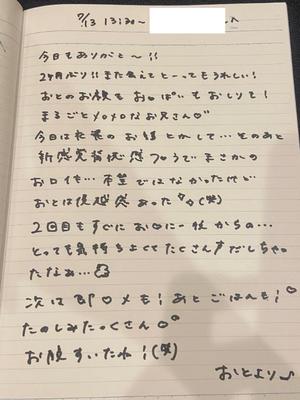 7/13 13:30〜 へ
今日もありがと〜!!
2ヶ月ぶり!!また会えてと〜ってもうれしい!
おとのお顔もお口ぱいもおしりも!
まるごとメロメロなお兄さん♡
今日は の お話とかして…そのあと
新感覚 感 フロうでまさかの
お口イキ…希望ではなかったけど
おとは優越感あった (笑)
2回目もすぐにお口に からの…
とっても気持ちよくてたくさんすだしちゃっ
たなぁ…
次は即◯メも!あとごはんも!
たのしみたっくさん
お腹すいたね!(笑)
おとより♪